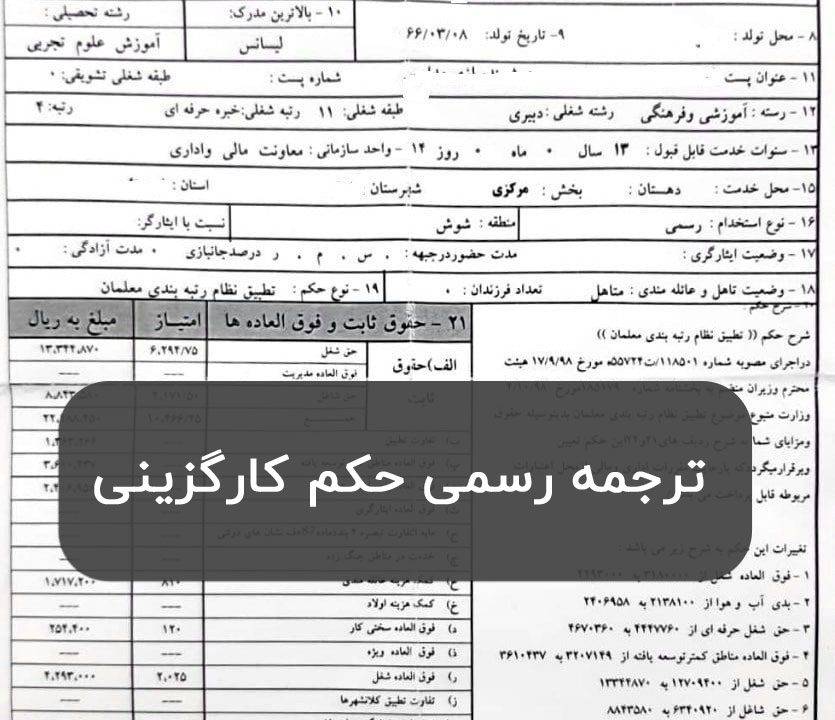 ۱۰ - بالاترین مدرک:
رشته تحصیلی :
۸ - محل تولد :
۹- تاریخ تولد: ۶۶/۰۳/۰۸
لیسانس
آموزش علوم تجربی
۱۱ - عنوان پست
شماره پست :
طبقه شغلی تشویقی: ۰
۱۲ - رسته : آموزشی وفرهنگی رشته شغلی : دبیری طبقه شغلی: ۱۱ رتبه شغلی:خبره حرفه ای رتبه: ۴
۱۳ - سنوات خدمت قابل قبول : ۱۳ سال ۰ ماه ۰ روز ۱۴ - واحد سازمانی : معاونت مالی واداری
۱۵- محل خدمت : دهستان : بخش : مرکزی شهرستان استان :
۱۶ - نوع استخدام : رسمی
منطقه : شوش
نسبت با ایثارگر:
۱۷ - وضعیت ایثارگری : مدت حضوردرجبهه : . س . م . ر درصدجانبازی ۰ مدت آزادگی : ۰
۱۸ - وضعیت تاهل و عائله مندی : متاهل تعداد فرزندان : ۰
۱۹ - نوع حکم : تطبیق نظام رتبه بندی معلمان
۲۰ - شرح حکم :
شرح حکم (( تطبیق نظام رتبه بندی معلمان ))
دراجرای مصوبه شماره ۱۱۸۵۰۱/ت۵۵۷۲۴ه مورخ ۱۷/۹/۹۸ هیئت
محترم وزیران منضم به بخشنامه شماره ۱۸۵۱۷۹مورخ
وزارت متبوع موضوع تطبیق نظام رتبه بندی معلمان بدینوسیله حقوق
ومزایای شما به شرح ردیف های ۲۱و۲۲این حکم تعیین
وبرقرارمیگردد
مربوطه قابل پرداخت می
تغییرات این حکم به شرح زیر می باشد :
۱ - فوق العاده شغل از ۳۱۸۰۰۰۰ به ۴۲۹۳۰۰۰
۲ - بدی آب و هوا از ۲۱۳۸۱۰۰ به ۲۴۰۶۹۵۸
۳ - حق شغل حرفه ای از ۴۴۴۷۷۶۰ به ۴۶۷۰۳۶۰
۴ - فوق العاده مناطق کمترتوسعه یافته از ۳۲۰۷۱۴۹ به ۳۶۱۰۴۳۷
۵ - حق شغل از ۱۲۷۰۹۴۰۰ به ۱۳۳۴۴۸۷۰
۶ - حق شاغل از ۶۳۴۰۹۲۰ به ۸۸۴۳۵۸۰
۲۱ - حقوق ثابت و فوق العاده ها
امتیاز
مبلغ به ریال
الف)حقوق
ثابت
حق شغل ۶,۲۹۴/۷۵ ۱۳,۳۴۴,۸۷۰
فوق العاده مدیریت --- ---
حق شاغل ۴,۱۷۱/۵۰ ۸,۸۴۳,۵۸۰
جمـــــع ۱۰,۴۶۶/۲۵ ۲۲,۱۸۸,۴۵۰
ب) تفاوت تطبیق
پ) فوق العاده مناطق کمتر توسعه یافته
ث) فوق العاده ایثارگری
ج) خدمت در مناطق جنگ زده
ح) کمک هزینه عائله مندی ۸۱۰ ۱,۷۱۷,۲۰۰
خ) کمک هزینه اولاد --- ---
د) فوق العاده سختی کار ۱۲۰ ۲۵۴,۴۰۰
ذ) فوق العاده ویژه --- ---
ر) فوق العاده شغل ۲,۰۲۵ ۴,۲۹۳,۰۰۰
ز) تفاوت تطبیق کلانشهرها --- ---
ترجمه رسمی حکم کارگزینی